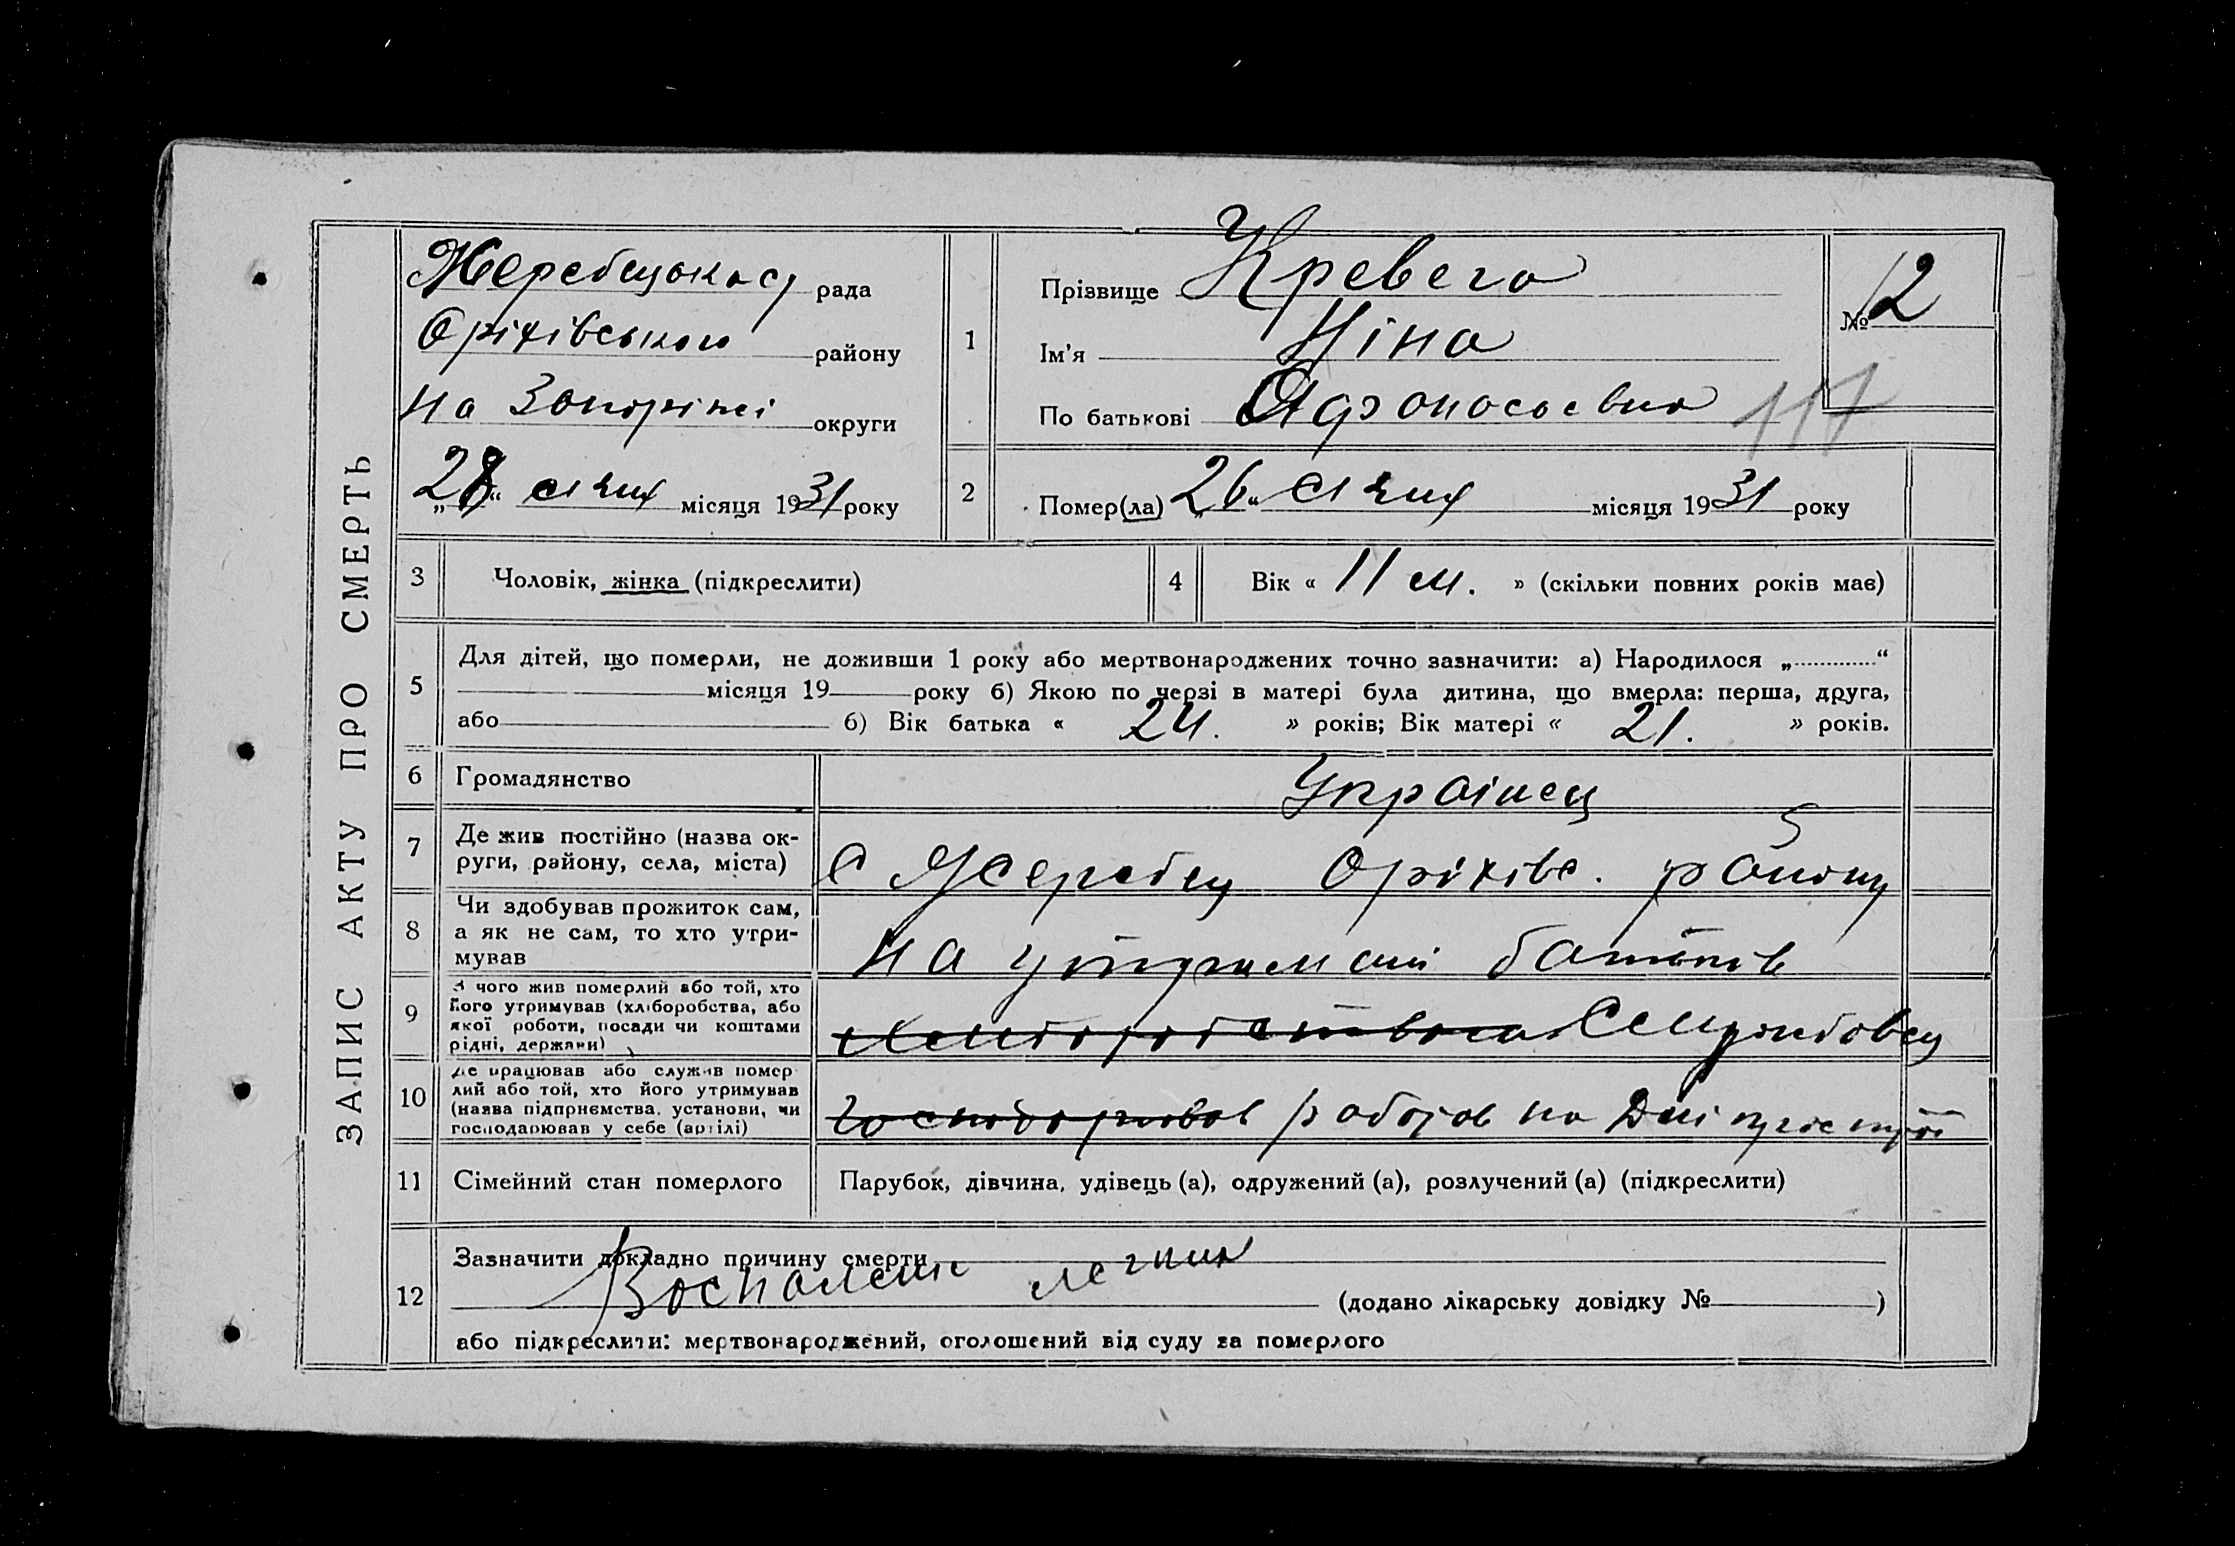 ЗАПИС АКТУ ПРО СМЕРТЬ
Жеребецькою рада
Оріхівського району
на Запоріжі округи
„28“ січня місяця 1931 року
1
Прізвище Кревега
Ім’я Ніна
По батькові Афонасоевна
№ 12
117
2
Помер(ла) „26“ січня місяця 1931 року
3 Чоловік, жінка (підкреслити)
4 Вік « 11 м. » (скільки повних років має)
5 Для дітей, що померли, не доживши 1 року або мертвонароджених точно зазначити: а) Народилося „ “
місяця 19 року б) Якою по черзі в матері була дитина, що вмерла: перша, друга,
або б) Вік батька « 24. » років; Вік матері « 21. » років.
6 Громадянство Украінец
7 Де жив постійно (назва ок-
руги, району, села, міста) С Жеребец Оріхівс. району
8 Чи здобував прожиток сам,
а як не сам, то хто утри-
мував на утриманні батьків
9 З чого жив померлий або той, хто
його утримував (хліборобства, або
якої роботи, посади чи коштами
рідні, держави)
10 Де працював або служив помер
лий або той, хто його утримував
(назва підприємства, установи, чи
господарював у себе (артілі) господорював роботов на Дніпрострої
11 Сімейний стан померлого Парубок, дівчина, удівець (а), одружений (а), розлучений (а) (підкреслити)
12 Зазначити докладно причину смерти
Воспалení легких
(додано лікарську довідку № )
або підкреслити: мертвонароджений, оголошений від суду за померлого